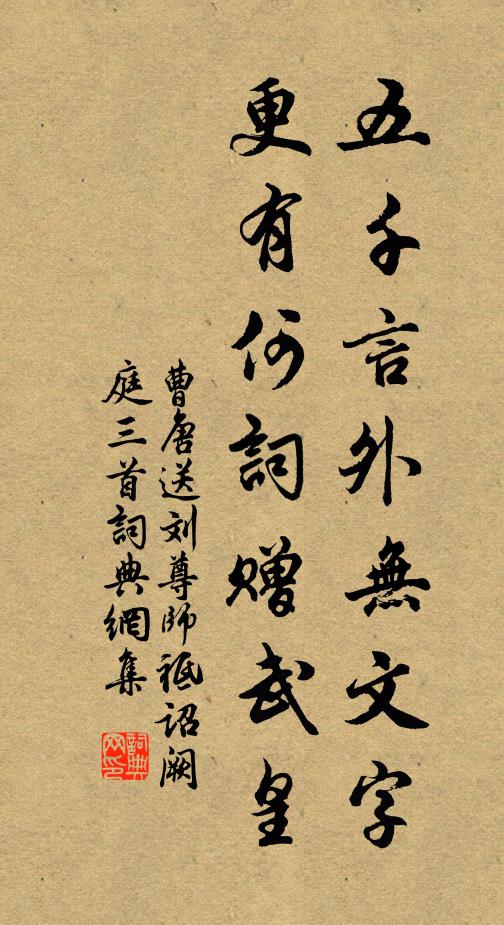 五千言外無文字
更有何詞贈武皇
曹唐送刘尊師祗诏阙
庭三首詞典網集
詞典
网印